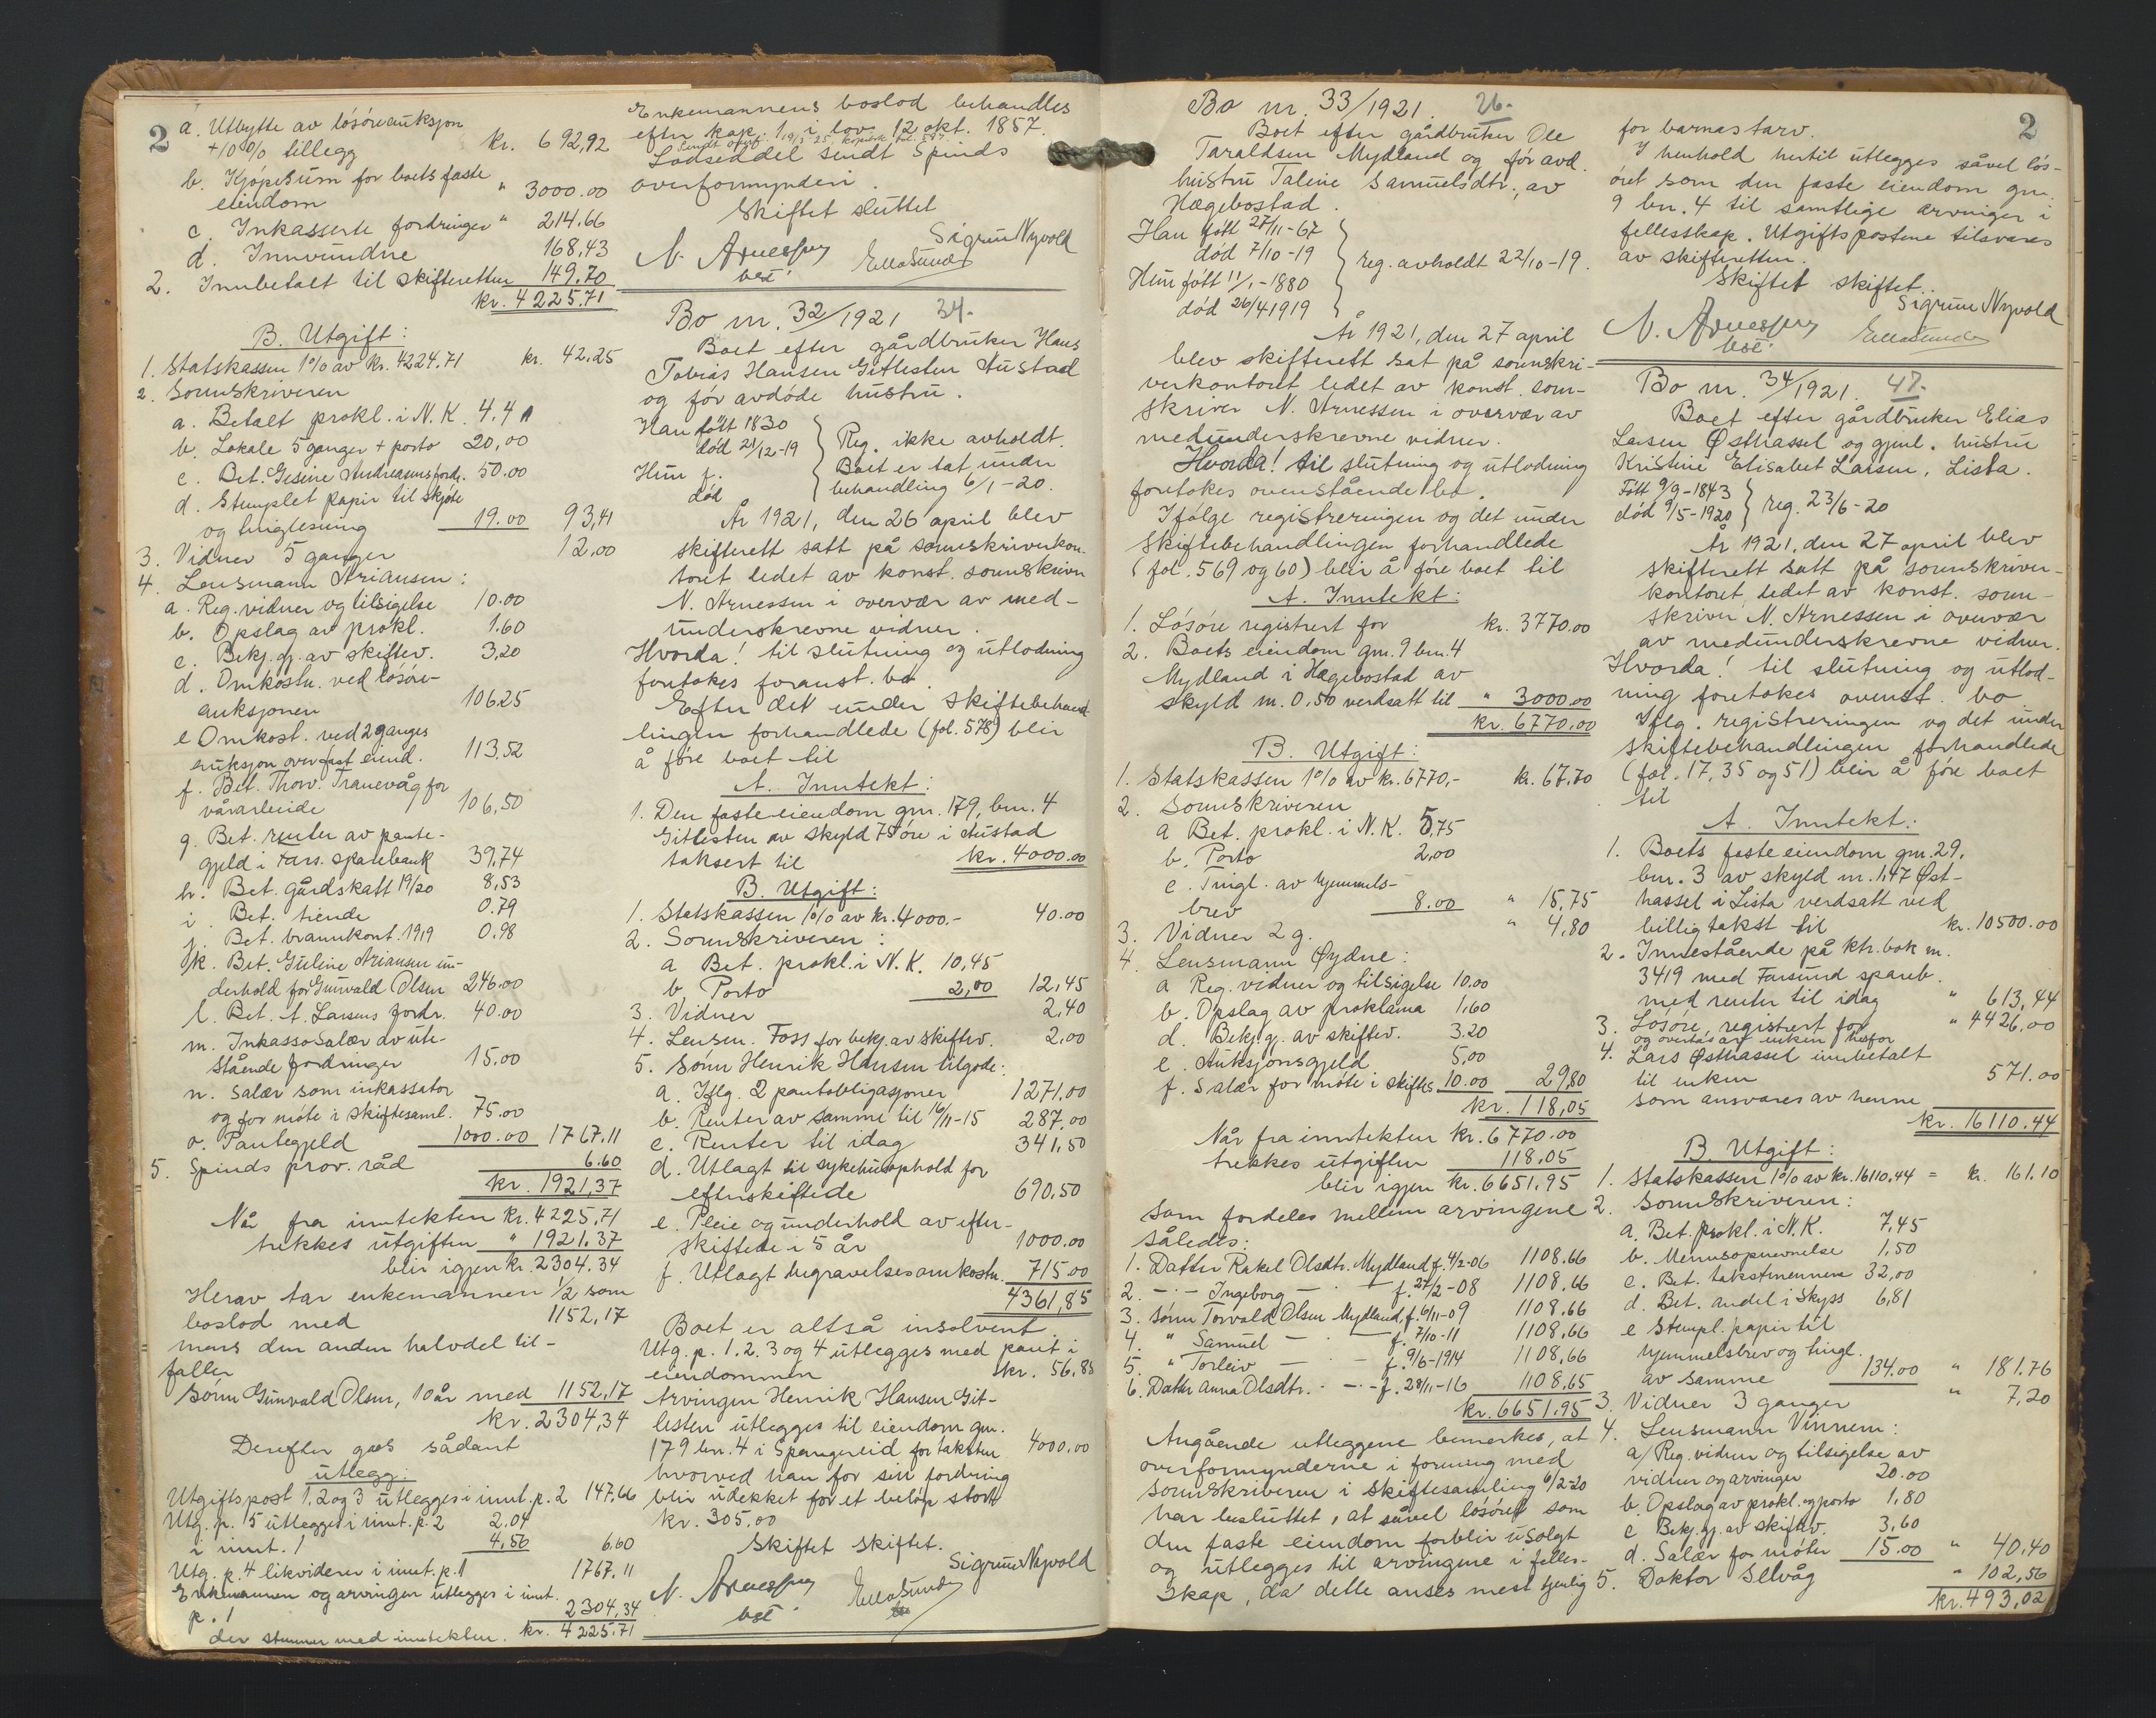 2
a. Utbytte av løsøreauksjon
+10% tillegg kr. 692,92
b. Kjøpesum for boets faste
eiendom " 3000.00
c. Inkasserte fordringer " 214.66
d. Innvundne 168,43
2. Innbetalt til skifteretten 149.70
kr. 4225.71
B. Utgift:
1. Statskassen 1% av kr. 4224.71 kr. 42,25
2. Sorenskriveren
a. Betalt prokl. i N.K. 4.41
b. Lokale 5 ganger + porto 20,00
c. Bet. Gesine Andreasens fordr. 50.00
d. Stemplet papir til skjøte
og tinglesning 19.00 93,41
3. Vidner 5 ganger 12,00
4. Lensmann Ariansen:
a. Reg. vidner og tilsigelse 10.00
b. Opslag av prokl. 1.60
c. Bekj.gj. av skiftev. 3,20
d. Omkostn. ved løsøre-
auksjonen 106.25
e Omkost. ved 2 ganges
auksjon over fast eiend. 113,52
f. Bet. Thorv. Tranevåg for
vårarbeide 106,50
g. Bet. renter av pante-
gjeld i Fars. sparebank 39,74
h. Bet. gårdskatt 19/20 8,53
i Bet. tiende 0.79
j. Bet. brannkont. 1919 0.98
k. Bet. Guline Ariansen un-
derhold for Gunvald Olsen 246.00
l. Bet. A. Larsens fordr. 40.00
m. Inkassosalær av ute-
stående fordringer 15.00
n. Salær som inkassator
og for møte i skiftesaml. 75.00
o. Pantegjeld 1000.00 1767.11
5. Spinds prov. råd 6.60
kr. 1921,37
Når fra inntekten kr. 4225,71
trekkes utgiften " 1921.37
blir igjen kr. 2304.34
Herav tar enkemannen 1/2 som
boslod med 1152,17
mens den anden halvdel til-
faller
Sønn Gunvald Olsen, 10 år med 1152,17
kr. 2304,34
Derefter gjøres sådant
utlegg:
Utgiftspost 1, 2 og 3 utlegges i innt. p. 2 147,66
Utg. p. 5 utlegges i innt. p. 2 2.04
i innt. 1 4,56 6.60
Utg. p. 4 likviderer i innt. p. 1 1767.11
Enkemannen og arvingen utlegges i innt.
p. 1 2304,34
der stemmer med inntekten. kr. 4225.71
Enkemannens boslod behandles
efter kap. 1 i lov 12 okt. 1857.
Lodseddel sendt Spinds
overformynderi.
Skiftet sluttet
Sigrun Nyvold
N. Arnessen Ella Sunde
bst.
Bo nr. 32/1921 34.
Boet efter gårdbruker Hans
Tobias Hansen Gitlesten Austad
og før avdøde hustru.
Han født 1830
død 21/12-19 Reg. ikke avholdt.
Hun f. Boet er tat under
død behandling 6/1-20.
År 1921, den 26 april blev
skifterett satt på sorenskriverkon-
toret ledet av konst. sorenskriver
N. Arnessen i overvær av med-
underskrevne vidner.
Hvorda! til slutning og utlodning
foretokes foranst. bo.
Efter det under skiftebehand-
lingen forhandlede (fol. 578) blir
å føre boet til
A. Inntekt:
1. Den faste eiendom gnr. 179, bnr. 4
Gitlesten av skyld 75 øre i Austad
taksert til kr. 4000.00
B. Utgift:
1. Statskassen 1% av kr. 4000.- 40.00
2. Sorenskriveren:
a Bet. prokl. i N.K. 10,45
b Porto 2,00 12,45
3. Vidner 2,40
4. Lensm. Foss for bekj. av skiftev. 2,00
5. Sønn Henrik Hansen tilgode:
a. Iflg. 2 pantobligasjoner 1271,00
b. Renter av samme til 16/11-15 287,00
c. Renter til idag 341,50
d. Utlagt til sykehusophold for
efterskiftede 690,50
e. Pleie og underhold av efter-
skiftede i 5 år 1000.00
f. Utlagt begravelsesomkostn. 715.00
4361,85
Boet er altså insolvent.
Utg. p. 1. 2. 3 og 4 utlegges med pant i
eiendommen kr. 56,85
Arvingen Henrik Hansen Git-
lesten utlegges til eiendom gnr.
179 bnr. 4 i Spangereid for taksten 4000,00
hvorved han for sin fordring
blir udekket for et beløp stort
kr. 305.00
Skiftet skiftet.
Sigrun Nyvold
N. Arnessen Ella Sunde
bst.
Bo nr. 33/1921. 26.
Boet efter gårdbruker Ole
Taraldsen Mydland og før avd.
hustru Taline Samuelsdtr., av
Hægebostad.
Han født 27/11-67
død 7/10-19 reg. avholdt 22/10-19.
Hun født 11/1-1880
død 26/4 1919
År 1921, den 27 april
blev skifterett sat på sorenskri-
verkontoret ledet av konst. soren-
skriver N. Arnessen i overvær av
medunderskrevne vidner.
Hvorda! til slutning og utlodning
foretokes ovenstående bo.
Ifølge registreringen og det under
skiftebehandlingen forhandlede
(fol. 569 og 60) blir å føre boet til
A. Inntekt:
1. Løsøre registrert for kr. 3770.00
2. Boets eiendom gnr. 9 bnr. 4
Mydland i Hægebostad av
skyld m. 0,50 verdsatt til " 3000.00
kr. 6770,00
B. Utgift:
1. Statskassen 1% av kr. 6770,- kr. 67.70
2. Sorenskriveren
a Bet. prokl. i N.K. 5,75
b. Porto 2,00
c. Tingl. av hjemmels-
brev 8.00 " 15,75
3. Vidner 2 g. " 4,80
4. Lensmann Øydne:
a Reg. vidner og tilsigelse 10.00
b. Opslag av proklama 1,60
d. Bekj.gj. av skiftev. 3.20
e. Auksjonsgjeld 5,00
f. Salær for møte i skiftes 10.00 29,80
kr. 118,05
Når fra inntekten kr. 6770.00
trekkes utgiften 118.05
blir igjen kr. 6651.95
som fordeles mellem arvingene
således:
1. Datter Rakel Olsdtr. Mydland f. 4/2-06 1108.66
2. - " - Ingeborg - " - f. 27/2-08 1108,66
3. Sønn Torvald Olsen Mydland, f. 6/11-09 1108.66
4. " Samuel - " - f. 7/10-11 1108,66
5. " Torleiv - " - f. 9/6-1914 1108,66
6. Datter Anna Olsdtr. - " - f. 28/11-16 1108,65
kr. 6651.95
Angående utleggene bemerkes, at
overformynderne i forening med
sorenskriveren i skiftesamling 6/2-20
har besluttet, at såvel løsøret som
den faste eiendom forblir usolgt
og utlegges til arvingene i felles-
skap, da dette anses mest tjenlig
2
for barnas tarv.
I henhold hertil utlegges såvel løs-
øret som den faste eiendom gnr.
9 bnr. 4 til samtlige arvinger i
fellesskap. Utgiftspostene tilsvares
av skifteretten.
Skiftet skiftet.
Sigrun Nyvold
N. Arnessen Ella Sunde
bst.
Bo nr. 34/1921. 47.
Boet efter gårdbruker Elias
Larsen Østhassel og gjenl. hustru
Kristine Elisabet Larsen, Lista.
Født 9/9-1843
død 9/5-1920 reg. 23/6-20
År 1921, den 27 april blev
skifterett satt på sorenskriver-
kontoret, ledet av konst. soren-
skriver N. Arnessen i overvær
av medunderskrevne vidner.
Hvorda! til slutning og utlod-
ning foretokes ovenst. bo
Iflg. registreringen og det under
skiftebehandlingen forhandlede
(fol. 17, 35 og 51) blir å føre boet
til
A. Inntekt:
1. Boets faste eiendom gnr. 29,
bnr. 3 av skyld m. 1,47 Øst-
hassel i Lista verdsatt ved
billig takst til kr. 10500.00
2. Innestående på ktr. bok nr.
3419 med Farsund spareb.
med renter til idag " 613,44
3. Løsøre, registrert for " 4426,00
og overtas av enken herfor
4. Lars Østhassel innbetalt
til enken 571.00
som ansvares av henne
kr. 16110.44
B. Utgift:
1. Statskassen 1% av kr. 16110.44 = kr. 161.10
2. Sorenskriveren:
a. Bet. prokl. i N.K. 7,45
b. Mennsopnevnelse 1,50
c. Bet. takstmennene 32,00
d. Bet. andel i skyss 6,81
e Stempl. papir til
hjemmelsbrev og tingl.
av samme 134.00 " 181.76
3. Vidner 3 ganger " 7,20
4. Lensmann Vinnem:
a/ Reg. vidner og tilsigelse av
vidner og arvinger 20.00
b. Opslag av prokl. og porto 1,80
c Bekj.gj. av skiftev. 3,60
d. Salær for møter 15.00 " 40.40
5. Doktor Selvåg " 102,56
kr. 493,02